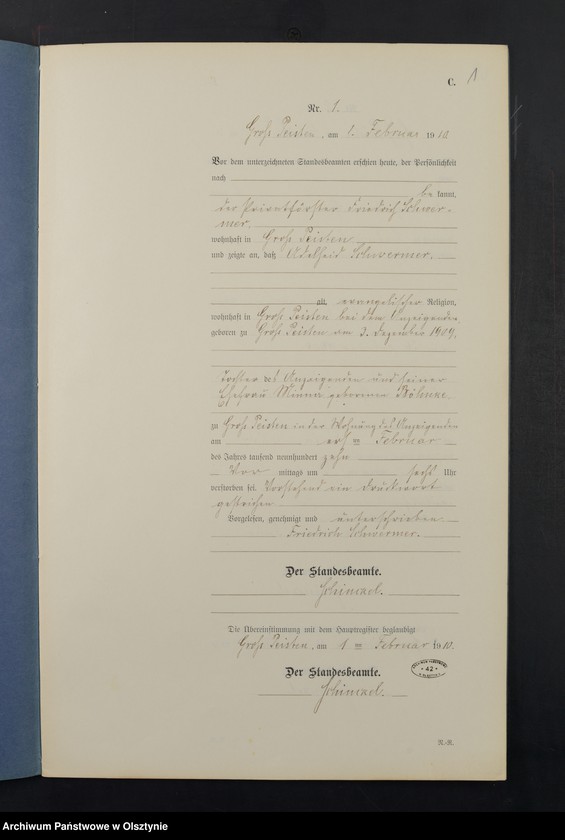 C. 1
Nr. 1.
Groß Peisten, am 1. Februar 1910
Vor dem unterzeichneten Standesbeamten erschien heute, der Persönlichkeit
nach
be kannt,
der Privatförster Friedrich Schwer-
mer
wohnhaft in Groß Peisten
und zeigte an, daß Adelheid Schwermer,
alt, evangelischer Religion,
wohnhaft in Groß Peisten bei dem Anzeigenden
geboren zu Groß Peisten am 3. Dezember 1909,
Tochter des Anzeigenden und seiner
Ehefrau Minna geborenen
zu Groß Peisten in der Wohnung des Anzeigenden
am ersten Februar
des Jahres tausend neunhundert zehn
Vor mittags um sechs Uhr
verstorben sei. Vorstehend ein Druckwort
gestrichen
Vorgelesen, genehmigt und unterschrieben
Friedrich Schwermer.
Der Standesbeamte.
Schinkel.
Die Übereinstimmung mit dem Hauptregister beglaubigt
Groß Peisten, am 1ten Februar 1910.
Der Standesbeamte.
Schinkel.
42
N.-R.
Archiwum Państwowe w Olsztynie